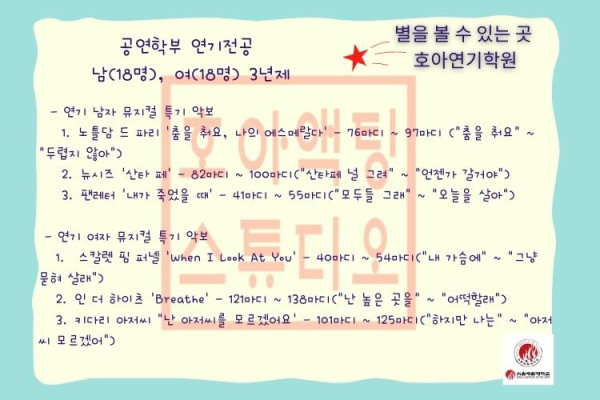 별을 볼 수 있는 곳
호아연기학원
공연학부 연기전공
남(18명), 여(18명) 3년제
- 연기 남자 뮤지컬 특기 악보
1. 노틀담 드 파리 '춤을 춰요, 나의 에스메랄다' - 76마디 ~ 97마디 ("춤을 춰요" ~
"두렵지 않아")
2. 뉴시즈 '산타 페' - 82마디 ~ 100마디("산타페 널 그려" ~ "언젠가 갈거야")
3. 팬레터 '내가 죽었을 때' - 41마디 ~ 55마디("모두들 그래" ~ "오늘을 살아")
- 연기 여자 뮤지컬 특기 악보
1. 스칼렛 핌 퍼넬 'When I Look At You' - 40마디 ~ 54마디("내 가슴에" ~ "그냥
묻혀 살래")
2. 인 더 하이츠 'Breathe' - 121마디 ~ 138마디("난 높은 곳을" ~ "어떡할래")
3. 키다리 아저씨 "난 아저씨를 모르겠어요' - 101마디 ~ 125마디("하지만 나는" ~ "아저
씨 모르겠어")
호아액팅
스튜디오
서울예술대학교